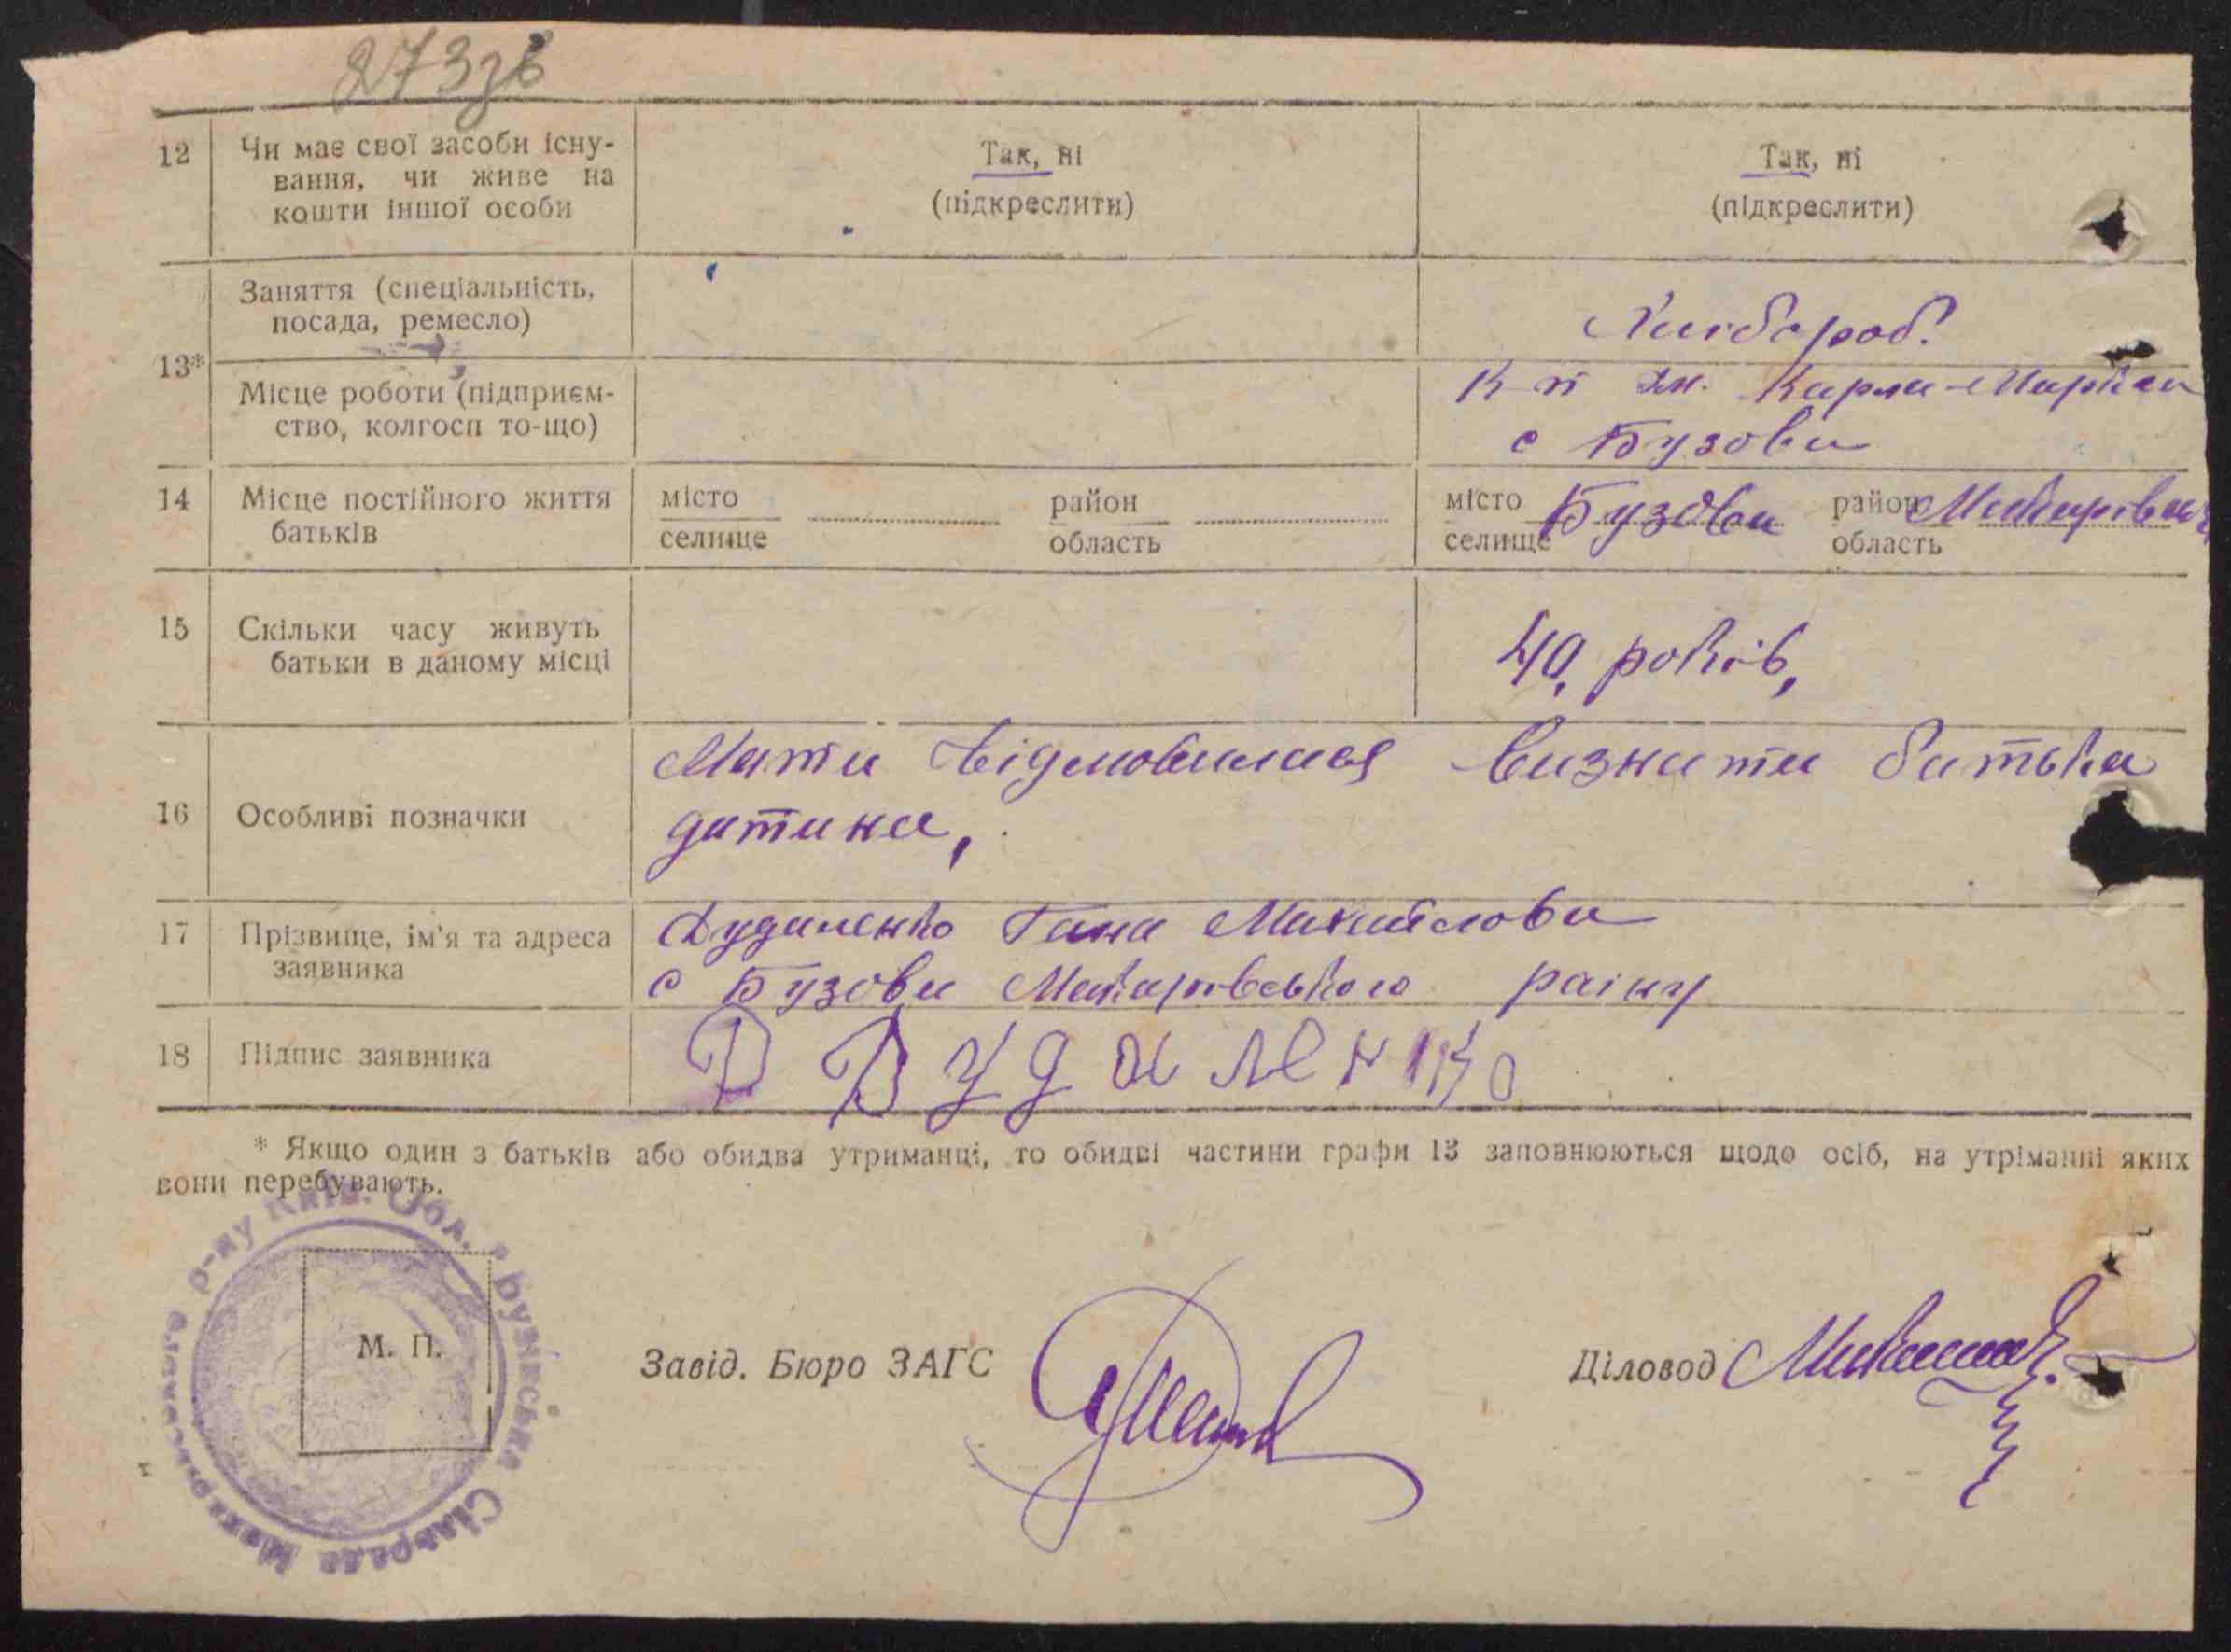 273зв
12 Чи має свої засоби існу-
вання, чи живе на
кошти іншої особи
Так, ні
(підкреслити)
Так, ні
(підкреслити)
13*
Заняття (спеціальність,
посада, ремесло)
Хлібороб.
Місце роботи (підприєм-
ство, колгосп то-що)
К-п ім. Карла-Маркса
с Бузова
14 Місце постійного життя
батьків
місто
селище
район
область
місто
селище
Бузова
район
область
15 Скільки часу живуть
батьки в даному місці
40, років,
16 Особливі позначки
Мати відмовилася визнати батька
дитини,
17 Прізвище, ім'я та адреса
заявника
Дудаленко Гана Михайлова
с Бузова Макарівського раіну
18 Підпис заявника
Д Дудаленко
* Якщо один з батьків або обидва утриманці, то обидві частини графи 13 заповнюються щодо осіб, на утріманні яких
вони перебувають.
р-ну Київ. Обл. Бузівська Сільрада
М. П.
Завід. Бюро ЗАГС
Діловод